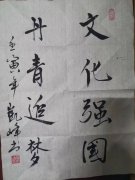 文化强国
丹青追梦
壬寅年凯峰书